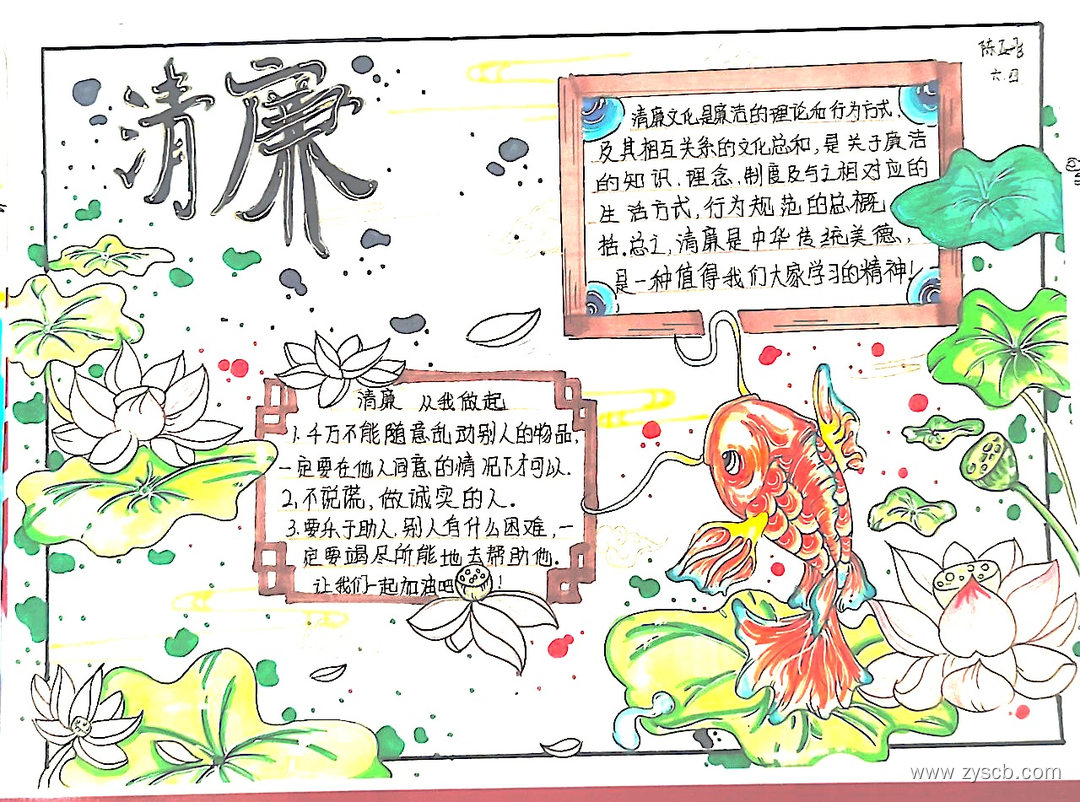 清廉
六.四
清廉文化是廉洁的理论和行为方式,
及其相互关系的文化总和,是关于廉洁
的知识、理念、制度及与之相对应的
生活方式,行为规范的总概
括.总之,清廉是中华传统美德,
是一种值得我们大家学习的精神!
清廉 从我做起
1.千万不能随意乱动别人的物品,
一定要在他人同意的情况下才可以.
2.不说谎,做诚实的人.
3.要乐于助人,别人有什么困难,一
定要竭尽所能地去帮助他.
让我们一起加油吧!
www.zyscb.com